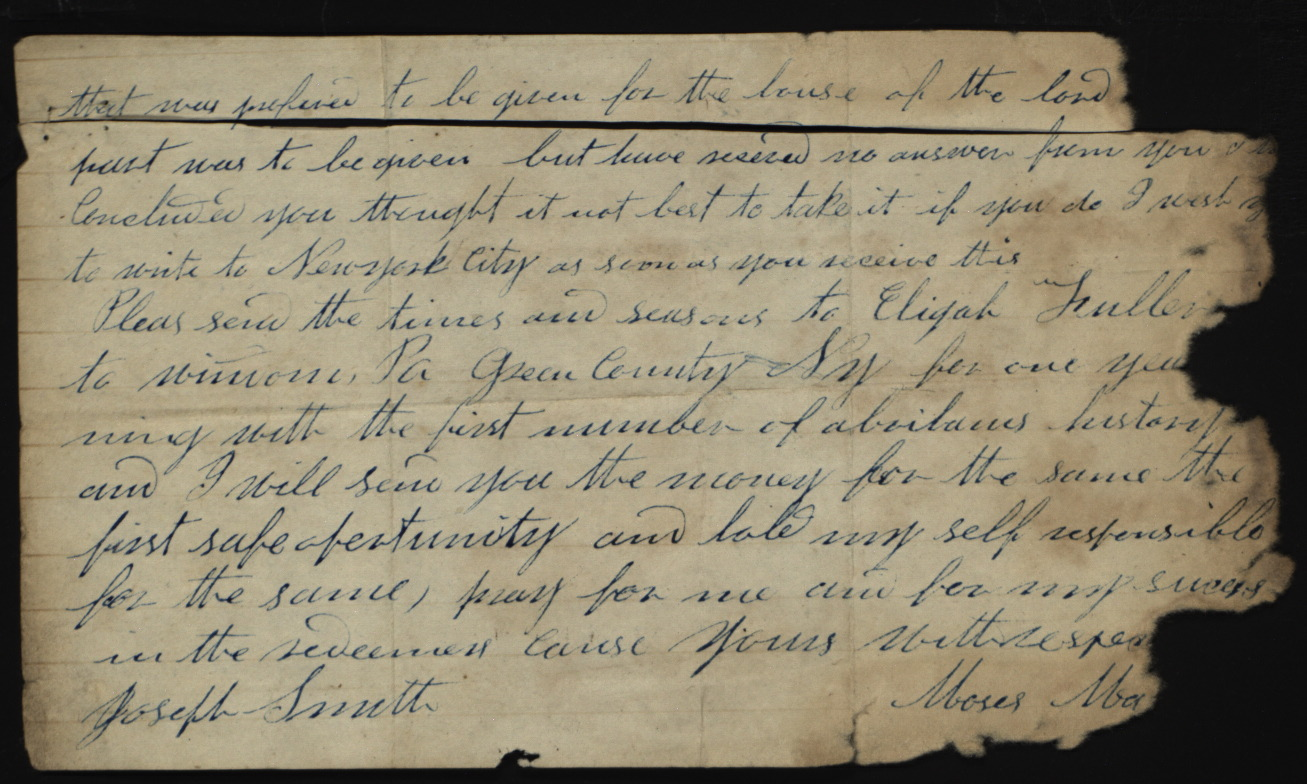 that was profered to be given for the house of the lord
part was to be given but have receved no answer from you
Concluded you thought it not best to take it if you do I wish
to write to Newyork City as soon as you receive this
Pleas send the times and seasons to Eligah Fuller
to Pa Green County Ny for one
ning with the first number of history
and I will send you the money for the same the
first safe opertunity and hold my self responsible
for the same, pray for me and for my sucess
in the redeemers Cause Yours with
Joseph Smith Moses